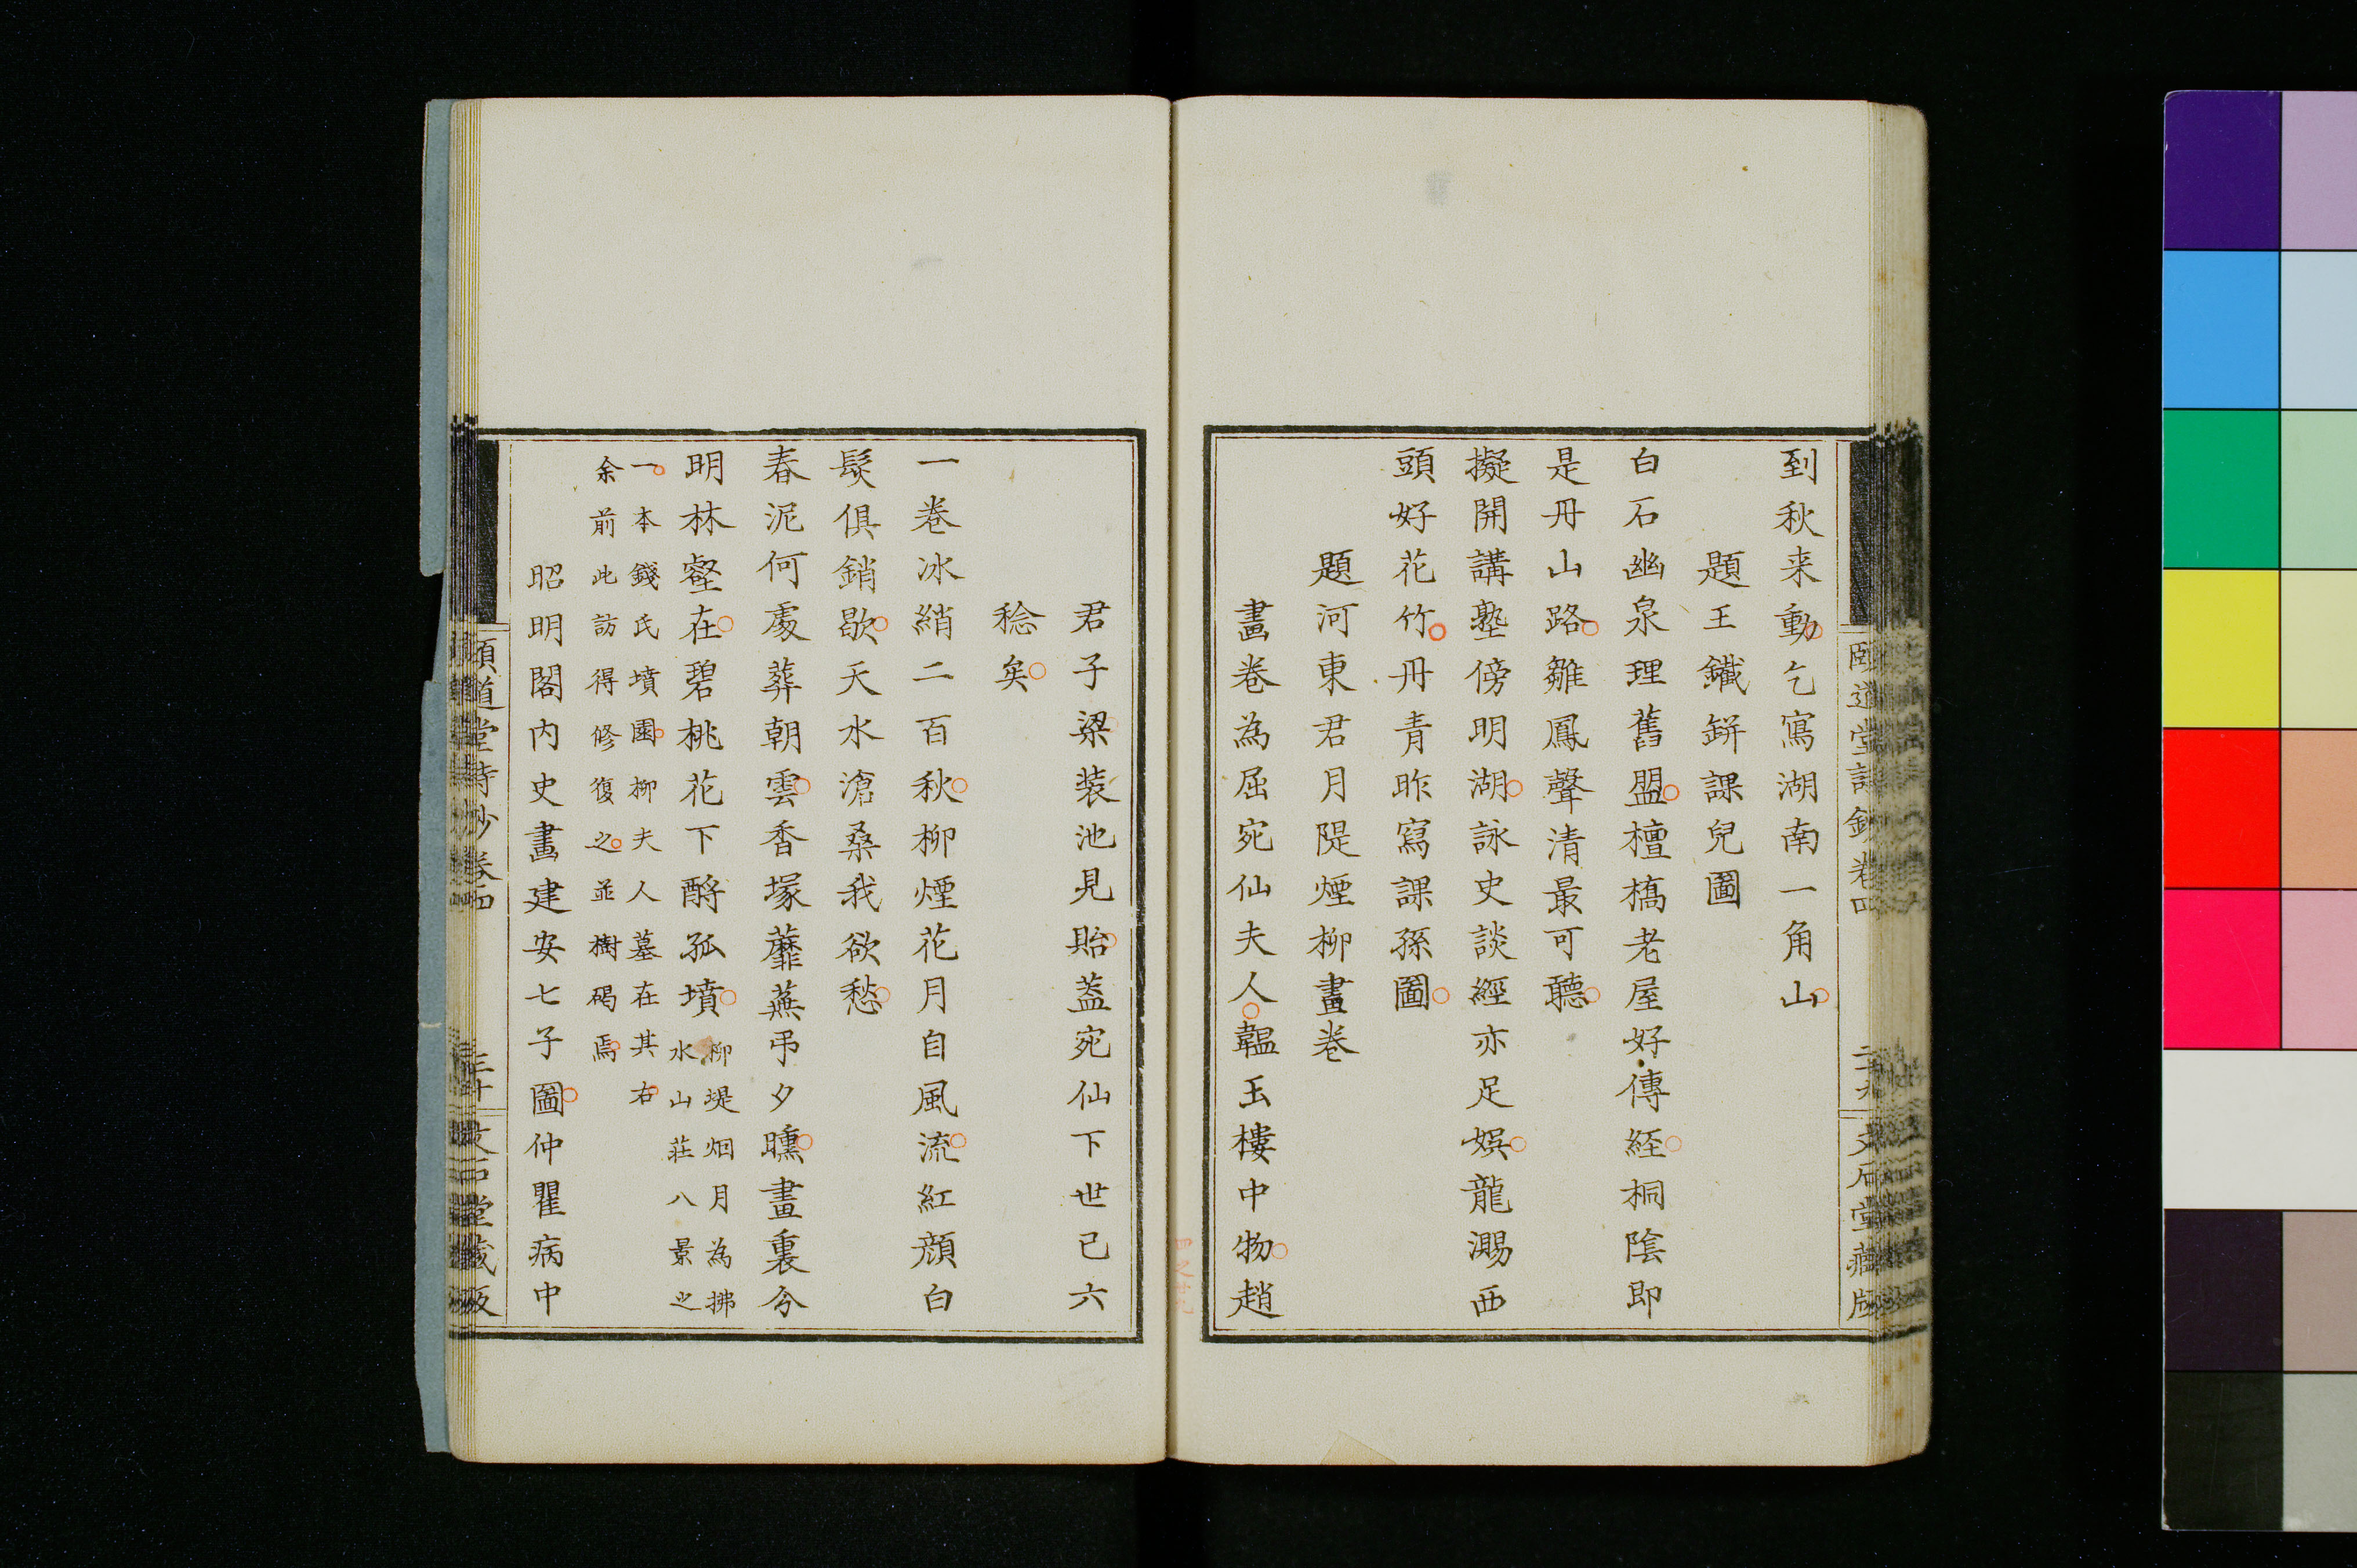 到秋来動乞寫湖南一角山
題王鐵鉼課兒圖
白石幽泉理舊盟檀橋老屋好傳經桐陰即
是丹山路雛鳳聲清最可聽
擬開講塾傍明湖詠史談經亦足娛龍灕西
頭好花竹丹青昨寫課孫圖
題河東君月隄煙柳畫卷
畫卷為屈宛仙夫人韞玉樓中物趙
頤道堂詩鈔卷四
二十九
文石堂藏版
君子梁裝池見貽葢宛仙下世已六
稔矣
一卷冰綃二百秋柳煙花月自風流紅顏白
髮俱銷歇天水滄桑我欲愁
春泥何處葬朝雲香塚蘼蕪弔夕曛畫裏分
明林壑在碧桃花下酹孤墳
柳堤烟月為拂
水山莊八景之
一本錢氏墳園柳夫人墓在其右
余前此訪得修復之並樹碣焉
昭明閣內史畫建安七子圖仲瞿病中
頤道堂詩鈔卷四
三十
文石堂藏版